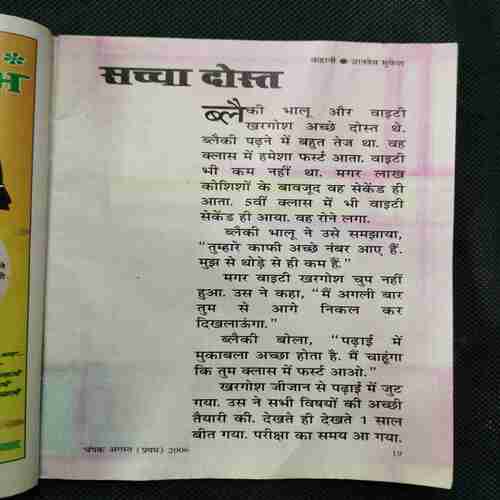 कहानी ● ज्ञानदेव मुकेश
सच्चा दोस्त
ब्लैकी भालू और वाइटी
खरगोश अच्छे दोस्त थे.
ब्लैकी पढ़ने में बहुत तेज था. वह
क्लास में हमेशा फर्स्ट आता. वाइटी
भी कम नहीं था. मगर लाख
कोशिशों के बावजूद वह सेकेंड ही
आता. 5वीं क्लास में भी वाइटी
सेकेंड ही आया. वह रोने लगा.
ब्लैकी भालू ने उसे समझाया,
“तुम्हारे काफी अच्छे नंबर आए हैं.
मुझ से थोड़े से ही कम हैं.”
मगर वाइटी खरगोश चुप नहीं
हुआ. उस ने कहा, “मैं अगली बार
तुम से आगे निकल कर
दिखलाऊंगा.”
ब्लैकी बोला, “पढ़ाई में
मुकाबला अच्छा होता है. मैं चाहूंगा
कि तुम क्लास में फर्स्ट आओ.”
खरगोश जीजान से पढ़ाई में जुट
गया. उस ने सभी विषयों की अच्छी
तैयारी की. देखते ही देखते 1 साल
बीत गया. परीक्षा का समय आ गया.
चंपक अगस्त (प्रथम) 2006
19